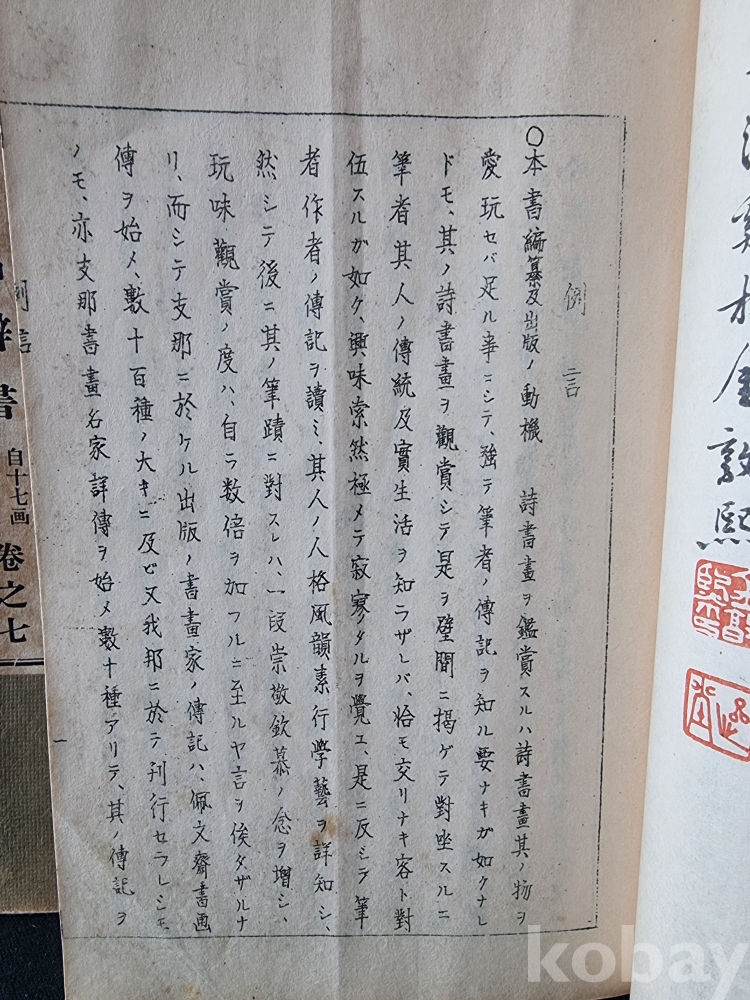 例言
〇本書編纂及出版ノ動機　詩書畫ヲ鑑賞スルハ詩書畫其ノ物ヲ
愛玩セバ足ル事ニシテ、強テ筆者ノ傳記ヲ知ル要ナキガ如クナレ
ドモ、其ノ詩書畫ヲ觀賞シテ是ヲ壁間ニ揭ゲテ對坐スルニ
筆者其人ノ傳統及實生活ヲ知ラザレバ、恰モ交リナキ客ト對
伍スルガ如ク、興味索然極メテ寂寥タルヲ覺エ、是ニ反シテ筆
者作者ノ傳記ヲ讀ミ、其人ノ人格風韻素行學藝ヲ詳知シ、
然シテ後ニ其ノ筆蹟ニ對スレハ、一段崇敬欽慕ノ念ヲ增シ、
玩味觀賞ノ度ハ、自ラ数倍ヲ加フルニ至ルヤ言ヲ俟タザルナ
リ、而シテ支那ニ於ケル出版ノ書畫家ノ傳記ハ、佩文齋書画
傳ヲ始メ、數十百種ノ大キニ及ビ又我邦ニ於テ刊行セラレシモ
ノモ、亦支那書畫名家詳傳ヲ始メ數十種アリテ、其ノ傳記ヲ
一
例言
辭書
自十七画
卷之七
敦熙
kobay